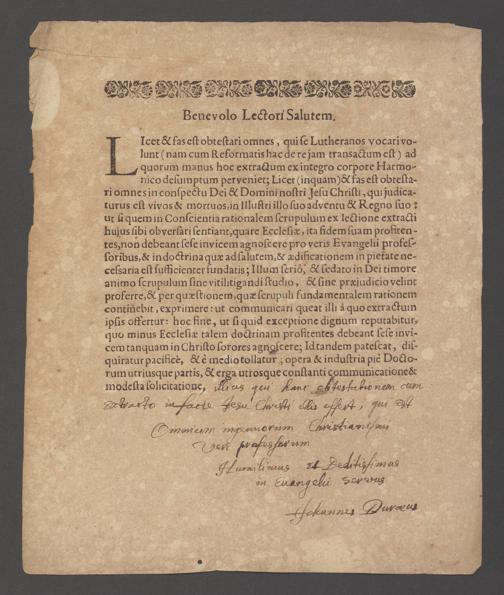 Benevolo Lectori Salutem.
LIcet & fas est obtestari omnes, qui se Lutheranos vocari vo-
lunt (nam cum Reformatis hac de re jam transactum est) ad
quorum manus hoc extractum ex integro corpore Harmo-
nico desumptum perveniet; Licet (inquam) & fas est obtesta-
ri omnes in conspectu Dei & Domini nostri Jesu Christi, qui judica-
turus est vivos & mortuos, in Illustri illo suo adventu & Regno suo:
ut si quem in Conscientia rationalem scrupulum ex lectione extracti
hujus sibi obversari sentiant, quare Ecclesiæ, ita fidem suam profiten-
tes, non debeant sese invicem agnoscere pro veris Evangelii profes-
soribus, & in doctrina quæ ad salutem, & ædificationem in pietate ne-
cessaria est sufficienter fundatis; Illum seriò, & sedato in Dei timore
animo scrupulum sine vitilitigandi studio, & sine præjudicio velint
proferre, & per quæstionem, quæ scrupuli fundamentalem rationem
continebit, exprimere: ut communicari queat illi à quo extractum
ipsis offertur: hoc fine, ut si quid exceptione dignum reputabitur,
quo minus Ecclesiæ talem doctrinam profitentes debeant sese invi-
cem tanquam in Christo sorores agnoscere; Id tandem patescat, dis-
quiratur pacificè, & è medio tollatur; opera & industria piè Docto-
rum utriusque partis, & erga utrosque constanti communicatione &
modesta solicitatione, illius qui hanc obtestationem cum
extracto in facie Jesu Christi illis offert; qui est
Omnium ingenuorum Christianismi
Veri professorum
Humilimus et Deditissimus
in Evangelii servus
Johannes Duræus